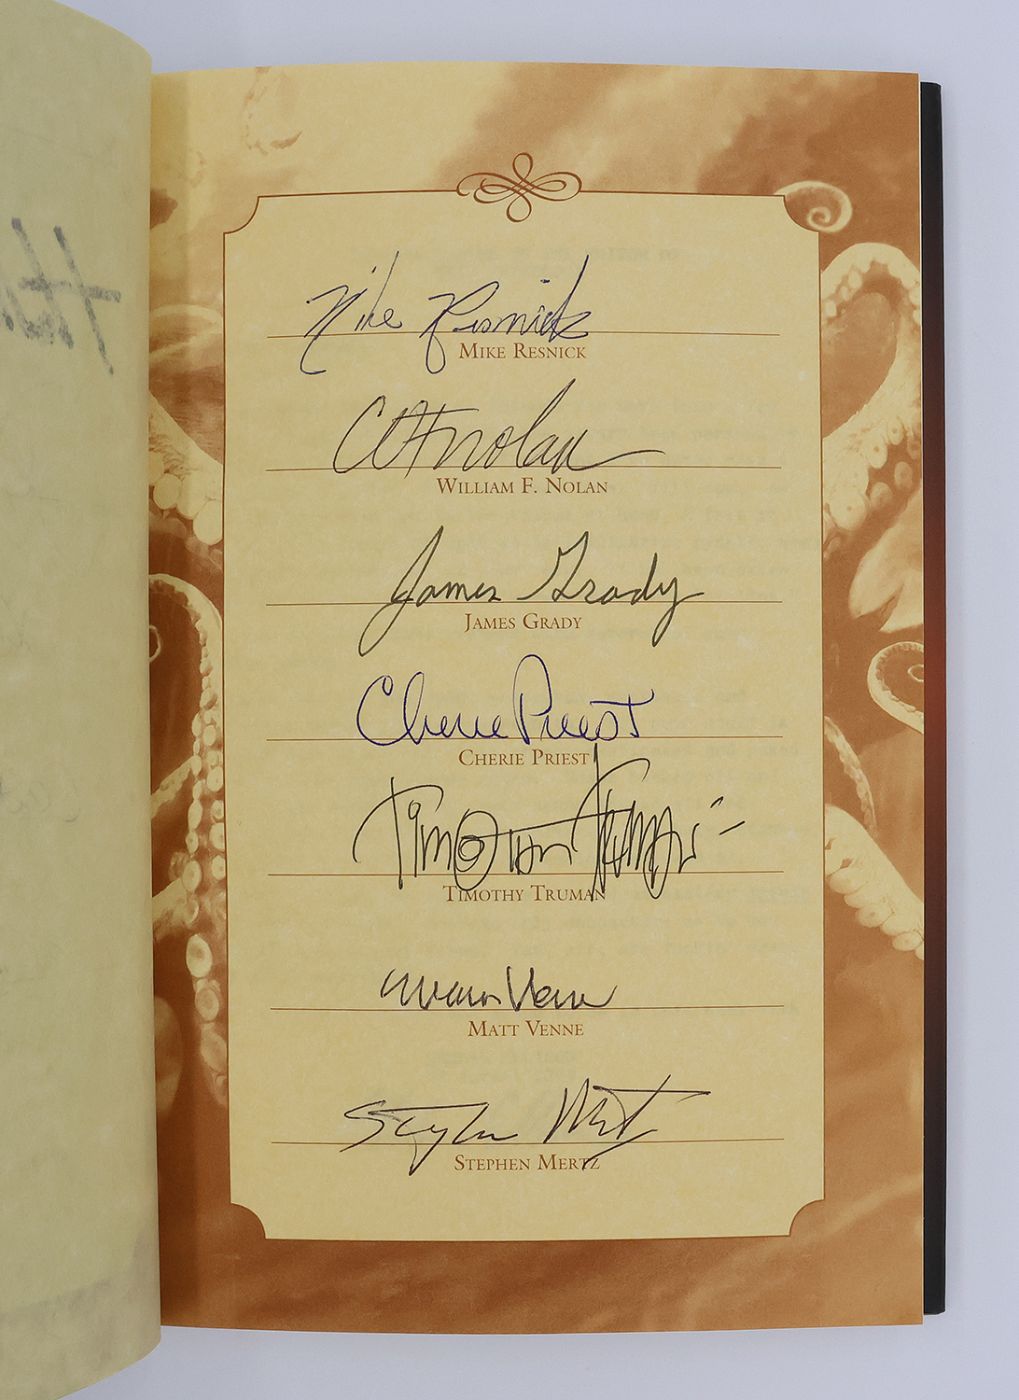 Mike Resnick
MIKE RESNICK
WFNolan
WILLIAM F. NOLAN
James Grady
JAMES GRADY
Cherie Priest
CHERIE PRIEST
Timothy Truman
TIMOTHY TRUMAN
Matt Venne
MATT VENNE
Stephen Mertz
STEPHEN MERTZ